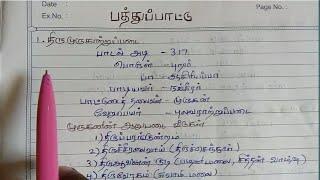 Date :
Ex.No :
Page No :
பத்துப்பாட்டு
1. திருமுருகாற்றுப்படை
பாடல் அடி - 317
பொருள் - புறம்
பா - ஆசிரியப்பா
பாடியவர் - நக்கீரர்
பாட்டுடைத் தலைவன் - முருகன்
வேறுபெயர் - புலவராற்றுப்படை
முருகனின் ஆறுபடை வீடுகள்
1) திருப்பரங்குன்றம்
2) திருச்சீரலைவாய் (திருச்செந்தூர்)
3) திருஆவினன் குடி (பழனிமலை, சித்தன் வாழ்வு)
4) திருவேரகம் (சுவாமி மலை)